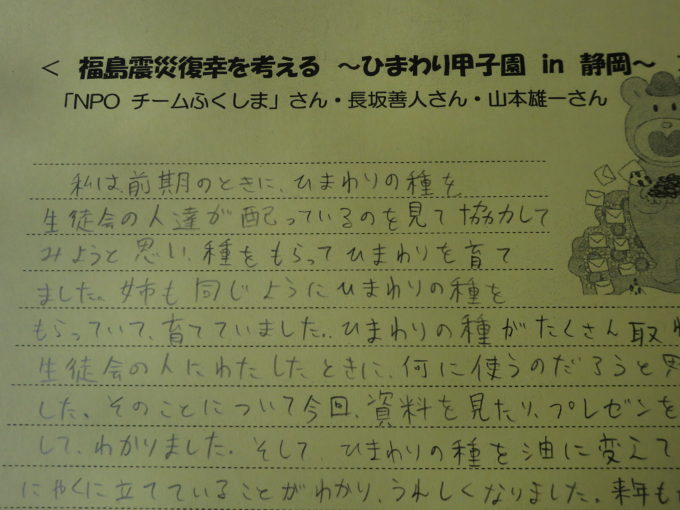 < 福島震災復幸を考える ～ひまわり甲子園 in 静岡～
「NPO チームふくしま」さん・長坂善人さん・山本雄一さん
私は前期のときに、ひまわりの種を
生徒会の人達が配っているのを見て協力して
みようと思い、種をもらってひまわりを育て
ました。姉も同じようにひまわりの種を
もらっていて、育てていました。ひまわりの種がたくさん取
生徒会の人にわたしたときに、何に使うのだろうと思
した。そのことについて今回、資料を見たり、プレゼンを
して、わかりました。そして、ひまわりの種を油に変えて
にやくに立てていることがわかり、うれしくなりました。来年も